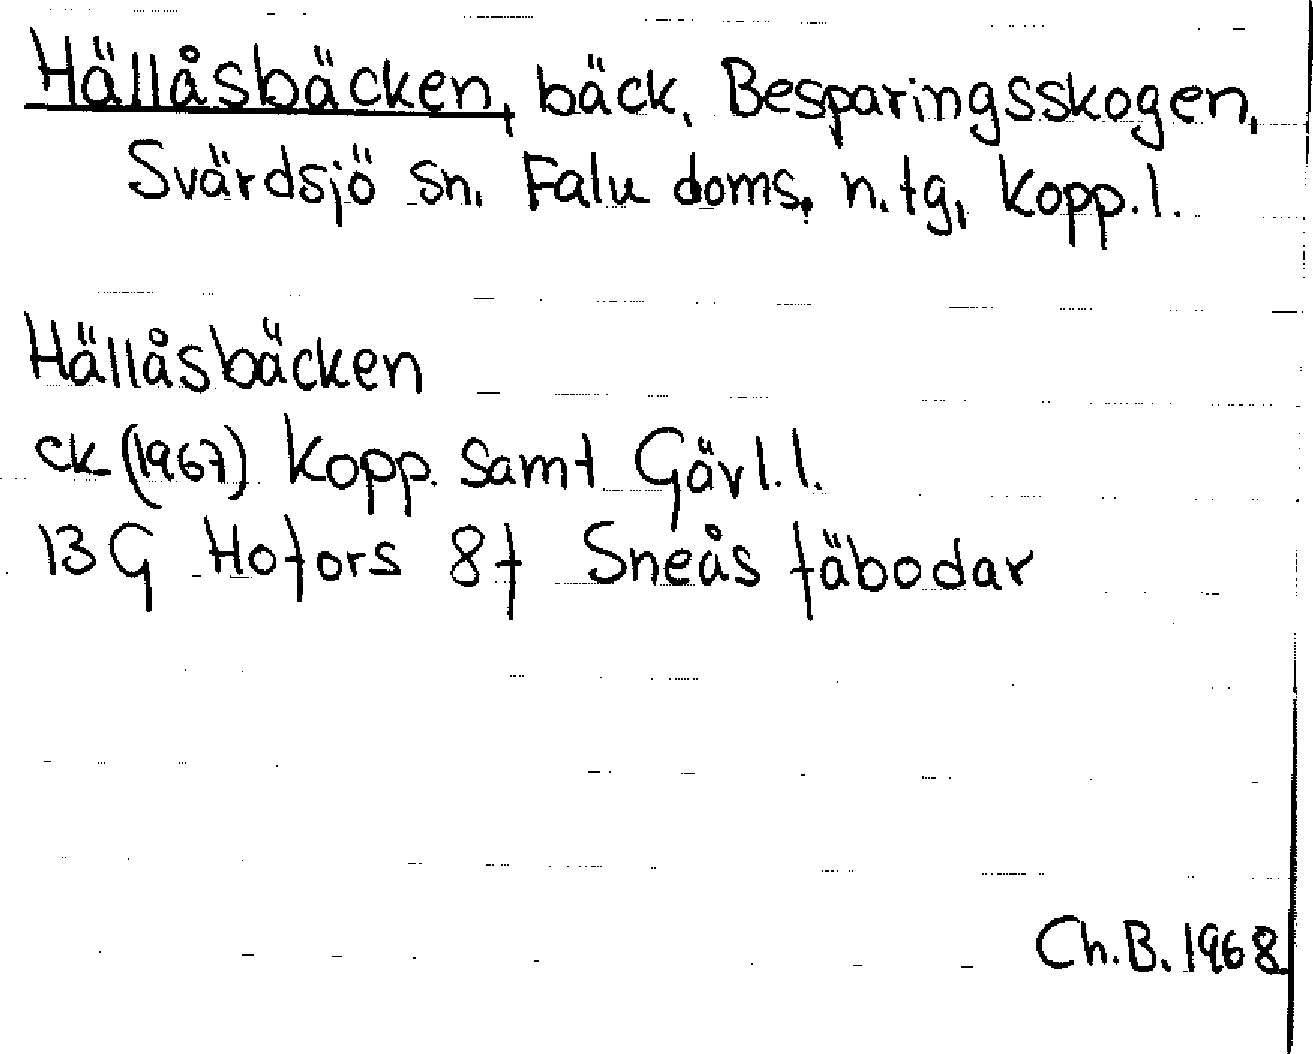 Hällåsbäcken, bäck, Besparingsskogen,
Svärdsjö sn. Falu doms. n. tg, Kopp. l.
Hällåsbäcken
ck (1967) Kopp. samt Gävl. l.
13 G Hofors 8f Sneås fäbodar
Ch.B. 1968